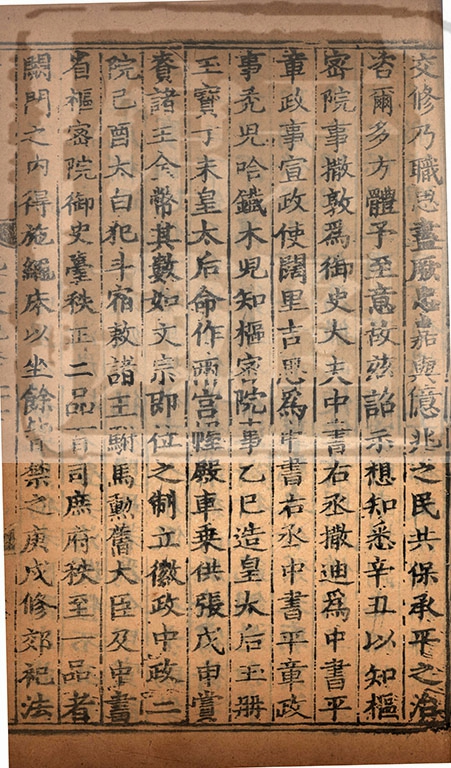 交修乃職思盡厥忠嘉與億兆之民共保承平之治
咨爾多方體予至意故茲詔示想知悉辛丑以知樞
密院事撒敦爲御史大夫中書右丞撒迪爲中書平
章政事宣政使闊里吉思爲中書右丞中書平章政
事禿兒哈鐵木兒知樞密院事乙巳造皇太后玉册
玉寶丁未皇太后命作兩宮幄殿車乗供張戊申賞
賚諸王金幣其數如文宗即位之制立徽政中政二
院己酉太白犯斗宿敕諸王駙馬勳舊大臣及中書
省樞密院御史臺秩正二品百司庶府秩至一品者
闕門之內得施繩床以坐餘皆禁之庚戌修郊祀法